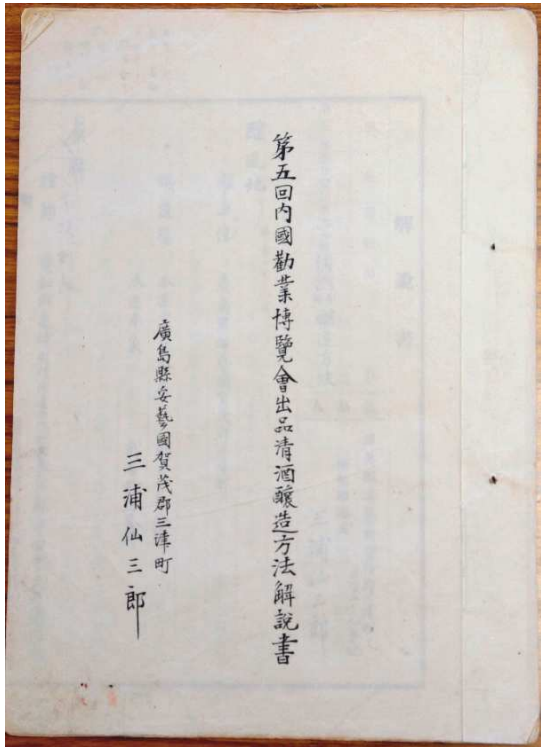 第五回内國勸業博覽會出品清酒釀造方法解說書
廣島縣安藝國賀茂郡三津町
三浦仙三郎